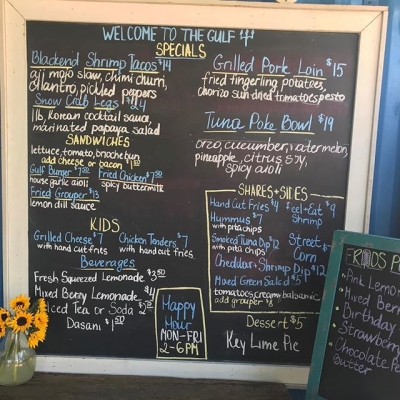 WELCOME TO THE GULF
SPECIALS
Blackend Shrimp Tacos $14
aji mojo slaw, chimi churri,
cilantro, pickled peppers
Snow Crab Legs $24
1 lb, Korean cocktail sauce,
marinated papaya salad
SANDWICHES
lettuce, tomato, brioche bun
add cheese or bacon
Gulf Burger
house garlic aioli
Fried Chicken
spicy buttermilk
Fried Grouper $13
lemon dill sauce
KIDS
Grilled Cheese $7
with hand cut fries
Chicken Tenders $7
with hand cut fries
Beverages
Fresh Squeezed Lemonade
Mixed Berry Lemonade $4
Iced Tea or Soda
Dasani
Happy
Hour
MON-FRI
2-6PM
Grilled Pork Loin $15
fried fingerling potatoes,
chorizo sun dried tomato pesto
Tuna Poke Bowl $19
orzo, cucumber, watermelon,
pineapple, citrus soy,
spicy aioli
SHARES + SIDES
Hand Cut Fries $4
Peel + Eat $9
Shrimp
Hummus $7
with pita chips
Smoked Tuna Dip $12
with pita chips
Street
Corn
Cheddar + Shrimp Dip $12
Mixed Green Salad $5
tomatoes, creamy balsamic
add grouper $6
Dessert $5
Key Lime Pie
Pink Lemon
Mixed Berr
Birthday
Strawberry
Chocolate Pe
Butter